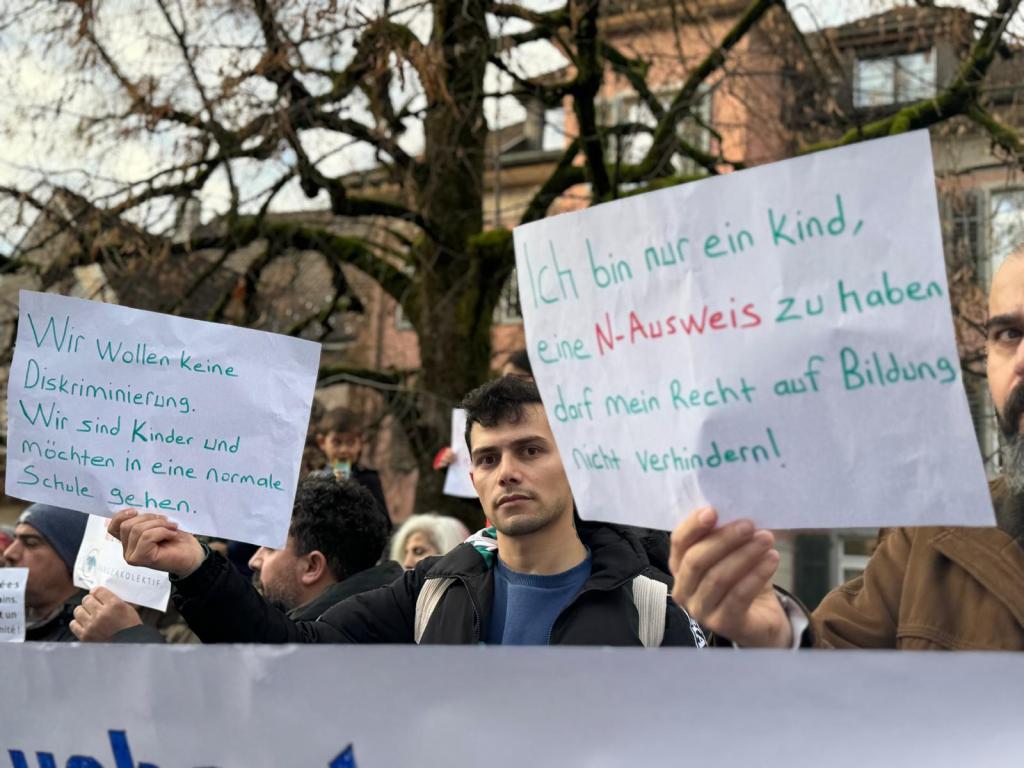 Wir wollen keine
Diskriminierung.
Wir sind Kinder und
möchten in eine normale
Schule gehen.
Ich bin nur ein Kind,
eine N-Ausweis zu haben
darf mein Recht auf Bildung
nicht verhindern!